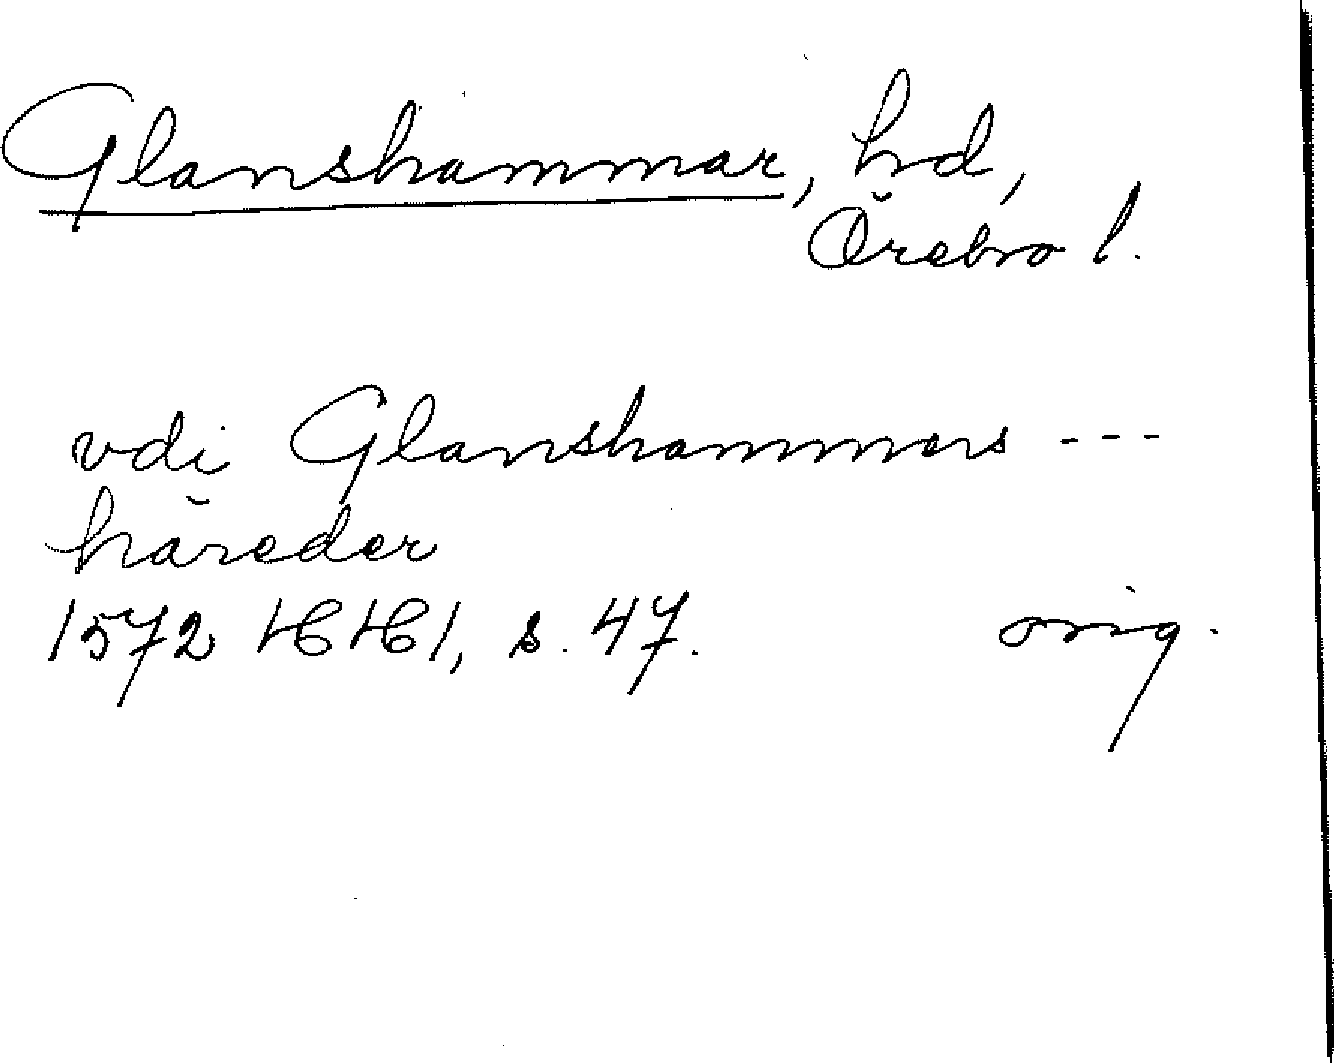 Glanshammar, hd,
Örebro l.
vdi Glanshammars ---
häreder
1572 HH 1, s. 47. orig.